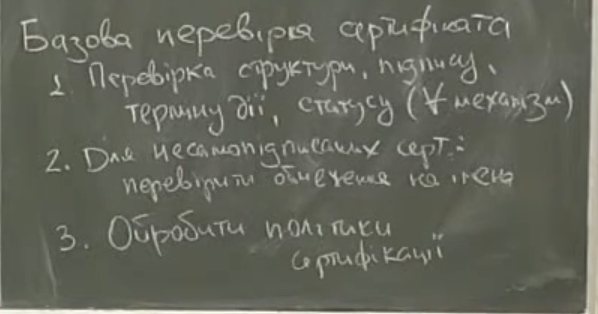 Базова перевірка сертифіката
1. Перевірка структури, підпису,
терміну дії, статусу (∀ механізм)
2. Для несамопідписаних серт.:
перевірити обмеження на імена
3. Обробити політики
сертифікації